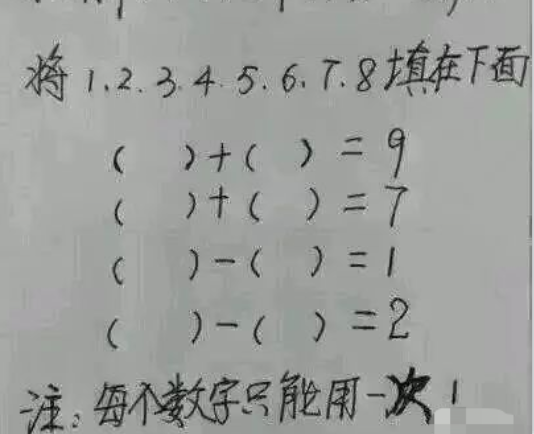 将1.2.3.4.5.6.7.8填在下面
( )+( )=9
( )+( )=7
( )-( )=1
( )-( )=2
注:每个数字只能用一次!